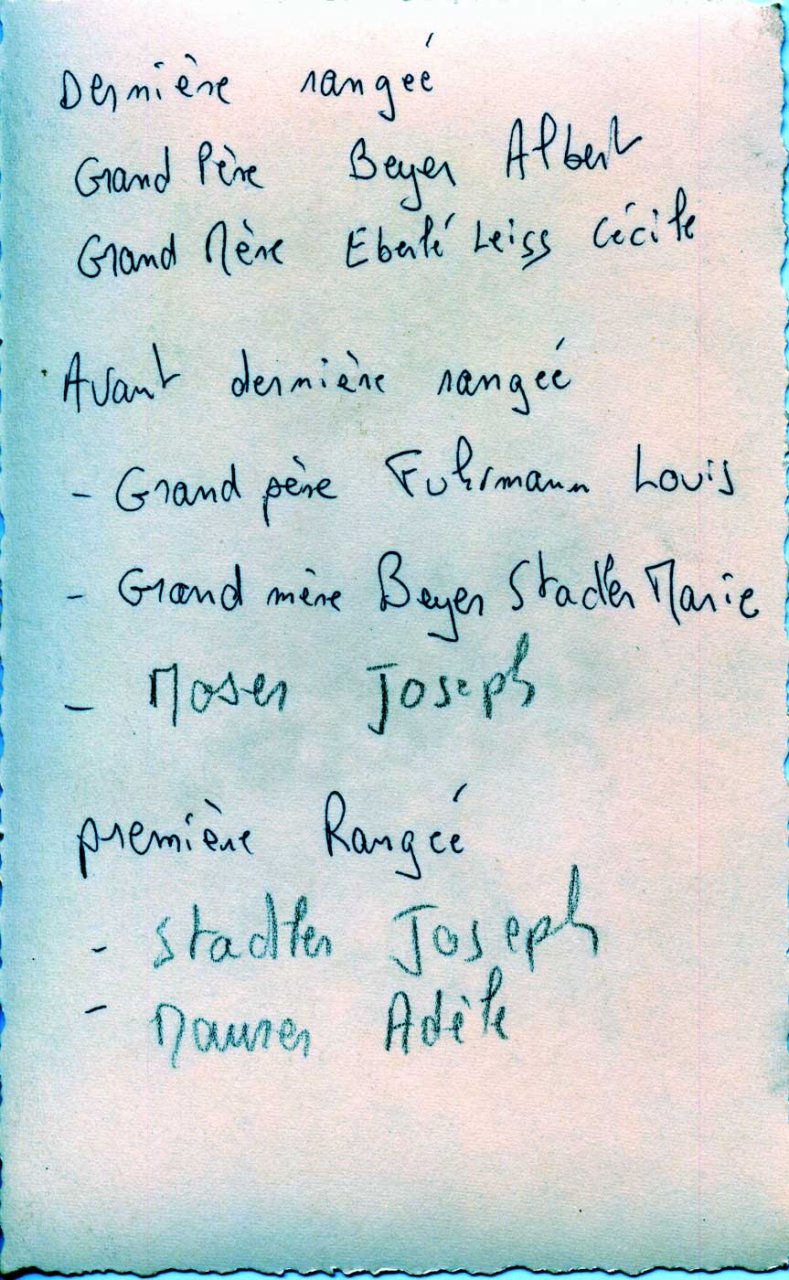 Dernière rangéé
Grand Père Beyer Albert
Grand Mère Eberlé Leiss Cécile
Avant dernière rangéé
- Grand père Fuhrmann Louis
- Grand mère Beyer Stadler Marie
- Moser Joseph
première Rangéé
- Stadler Joseph
- Maurer Adèle